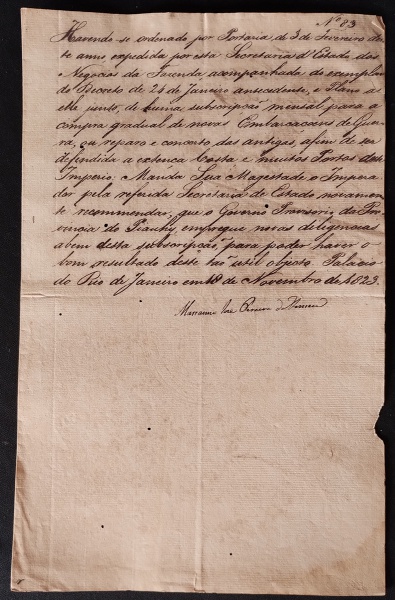 Nº 83
Havendo-se ordenado por Portaria de 3 de Fevereiro des-
te anno expedida por esta Secretaria d'Estado dos
Negocios da Fazenda, acompanhada do exemplar
do Decreto de 24 de Janeiro antecedente, e Plano a
elle junto, de huma subscripção mensal para a
compra gradual de novas Embarcaçoens de Guer-
ra, ou reparo e concerto das antigas, afim de ser
defendida a extenca Costa e muitos Portos deste
Imperio; Manda Sua Magestade o Impera-
dor pela referida Secretaria de Estado novamen-
te recommendar, que o Governo Provisorio da Pro-
vincia do Piauhy, empregue novas deligencias
abem desta subscripção, para poder haver o
bom resultado deste tão util objecto. Palacio
do Rio de Janeiro em 18 de Novembro de 1823.
Marianno José Pereira da Fonseca